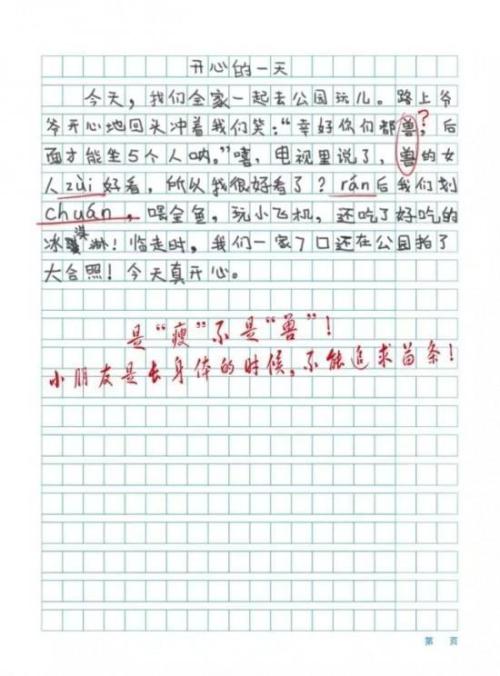 开心的一天
今天，我们全家一起去公园玩儿。路上爷
爷开心地回头冲着我们笑："幸好你们都兽，后
?
面才能坐5个人呐。"嘻，电视里说了，兽的女
人zùi好看，所以我很好看了？rán后我们划
chuán，喂金鱼，玩小飞机，还吃了好吃的
冰淇淋！临走时，我们一家7口还在公园拍了
大合照！今天真开心。
是"瘦"不是"兽"！
小朋友是长身体的时候，不能追求苗条！
第 页